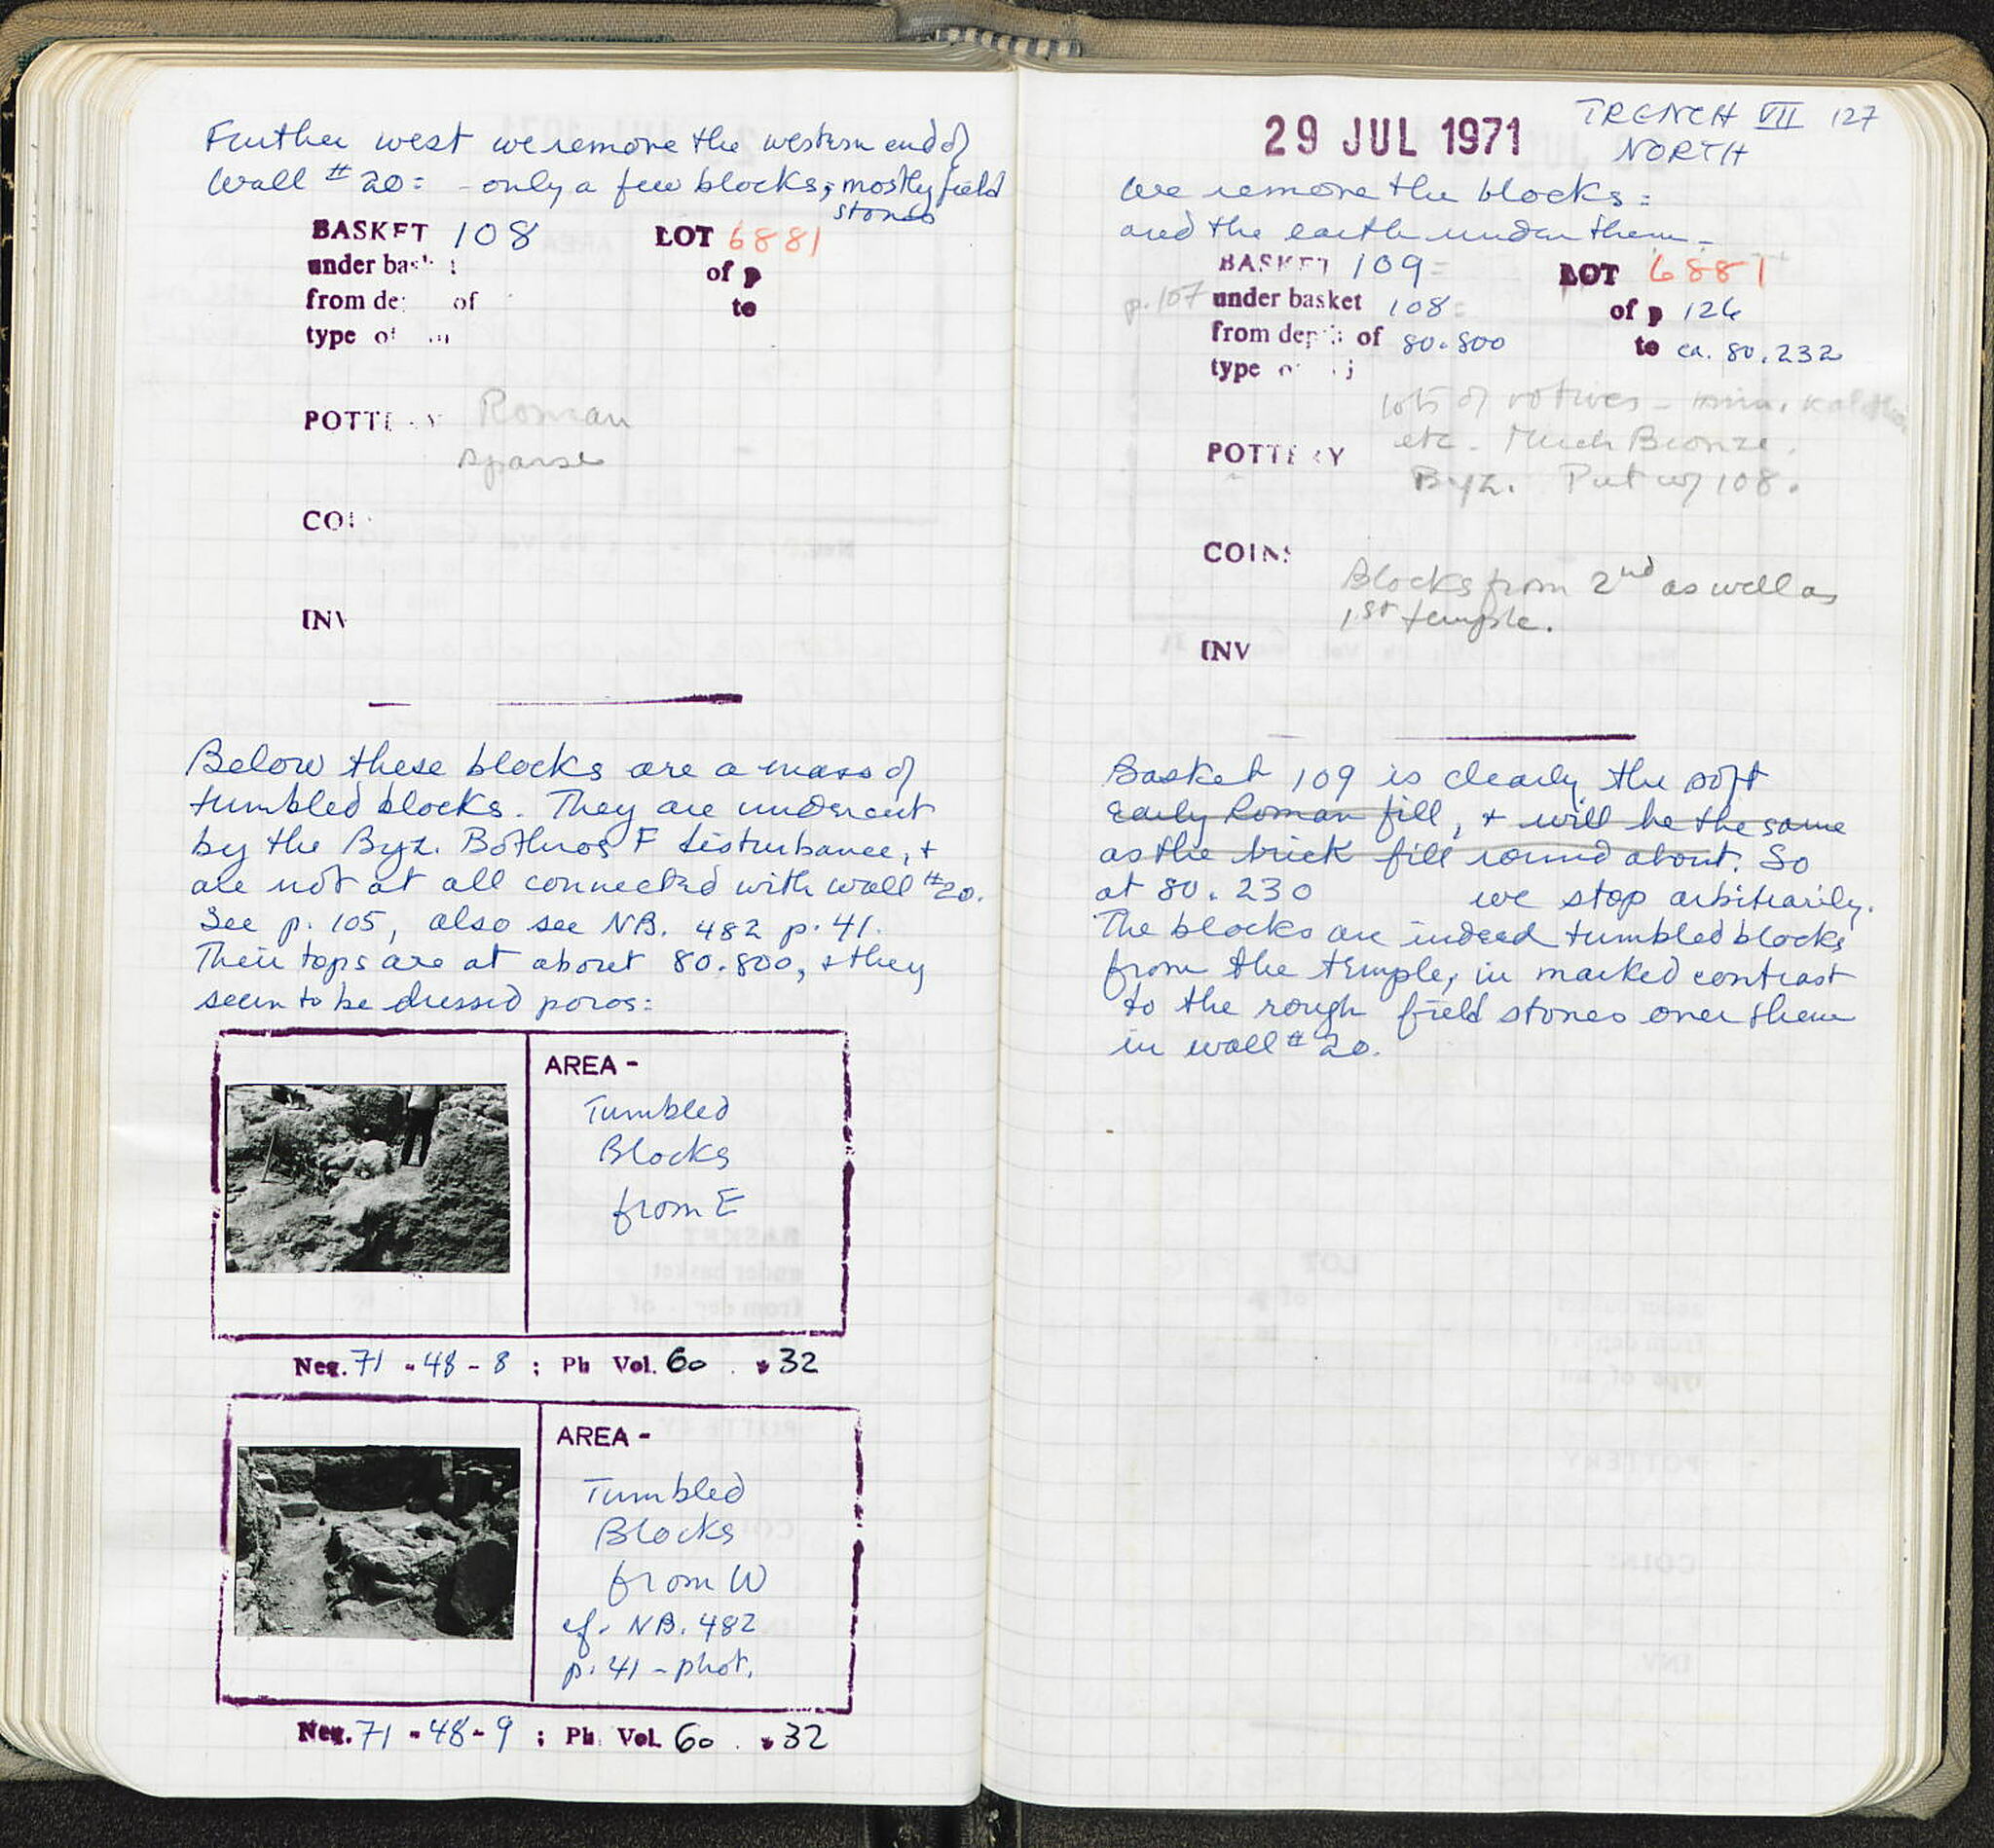 Further west we remove the western end of
Wall # 20: - only a few blocks; mostly field
stones
BASKET 108 LOT 6881
under bask of p
from de of to
type of
POTTERY Roman
sparse
COI
INV
Below these blocks are a mass of
tumbled blocks. They are undercut
by the Byz. Bothros F disturbance, +
are not at all connected with wall #20.
See p. 105, also see NB. 482 p. 41.
Their tops are at about 80.800, + they
seem to be dressed poros:
AREA -
Tumbled
Blocks
from E
Neg. 71 - 48 - 8 ; Ph Vol. 60 . 32
AREA -
Tumbled
Blocks
from W
cf. NB. 482
p. 41 - phot.
Neg. 71 - 48 - 9 ; Ph Vol. 60 . 32
29 JUL 1971 TRENCH VII 127
NORTH
We remove the blocks:
and the earth under them -
BASKET 109 LOT 6881
p. 107 under basket 108 of p 126
from depth of 80.800 to ca. 80.232
type of
lots of votives - min.
etc. Much Bronze.
POTTERY Byz. Put w/ 108.
COINS
Blocks from 2nd as well as
1st temple.
INV
Basket 109 is clearly the soft
Early Roman fill, + will be the same
as the brick fill round about. So
at 80.230 we stop arbitrarily.
The blocks are indeed tumbled blocks
from the temple, in marked contrast
to the rough field stones over them
in wall # 20.